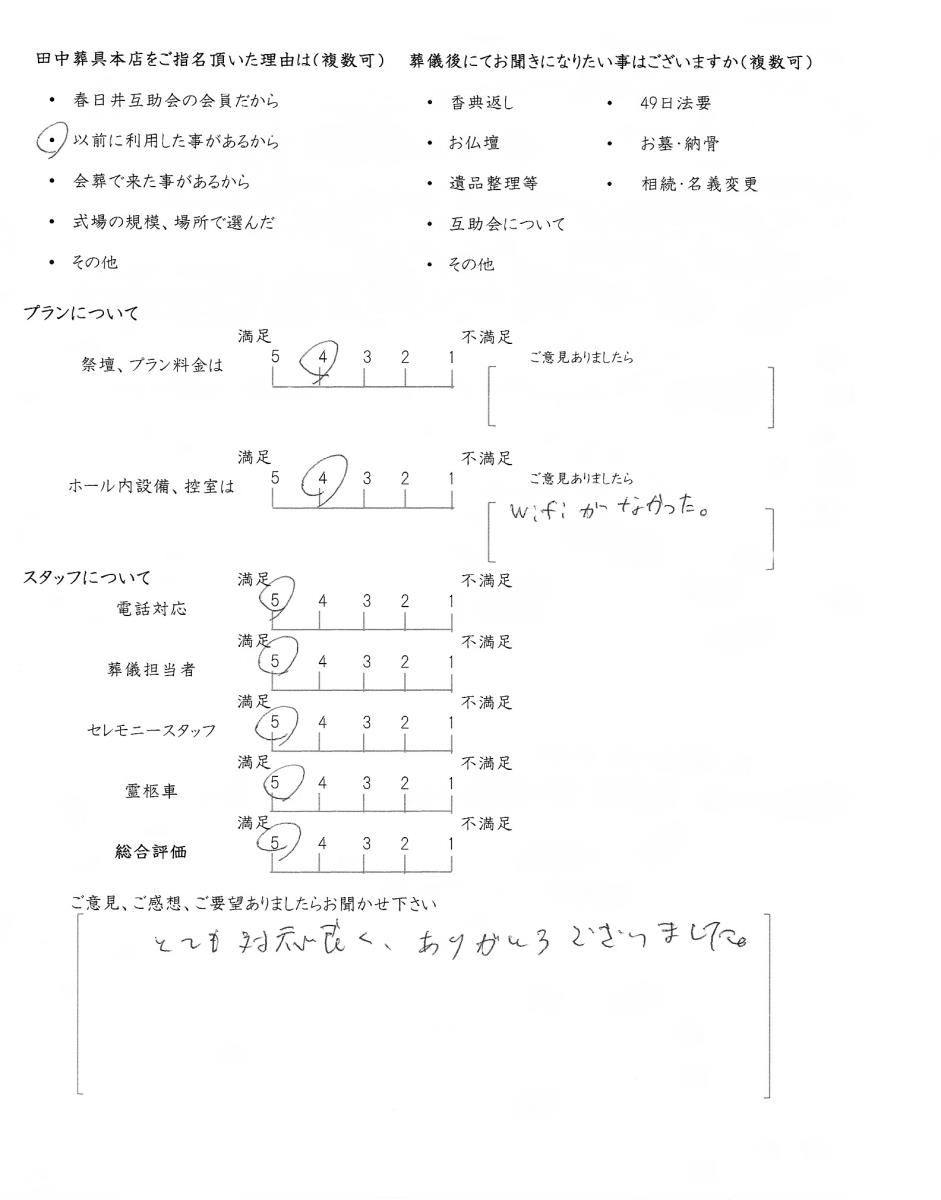 田中葬具本店をご指名頂いた理由は(複数可)
・ 春日井互助会の会員だから
・ 以前に利用した事があるから
・ 会葬で来た事があるから
・ 式場の規模、場所で選んだ
・ その他
葬儀後にてお聞きになりたい事はございますか(複数可)
・ 香典返し ・ 49日法要
・ お仏壇 ・ お墓・納骨
・ 遺品整理等 ・ 相続・名義変更
・ 互助会について
・ その他
プランについて
満足 不満足
祭壇、プラン料金は 5 4 3 2 1 ご意見ありましたら
満足 不満足
ホール内設備、控室は 5 4 3 2 1 ご意見ありましたら
wifiがなかった。
スタッフについて 満足 不満足
電話対応 5 4 3 2 1
満足 不満足
葬儀担当者 5 4 3 2 1
満足 不満足
セレモニースタッフ 5 4 3 2 1
満足 不満足
霊柩車 5 4 3 2 1
満足 不満足
総合評価 5 4 3 2 1
ご意見、ご感想、ご要望ありましたらお聞かせ下さい
とても対応良く、ありがとうございました。